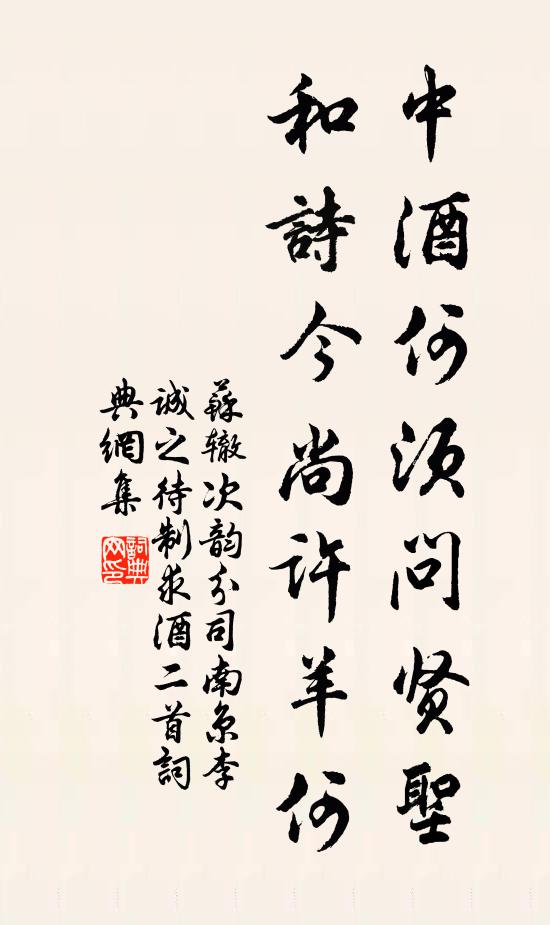 中酒何须问贤聖
和詩今尚许羊何
蘇辙次韵分司南京李
诚之待制求酒二首詞
典網集
詞典网印